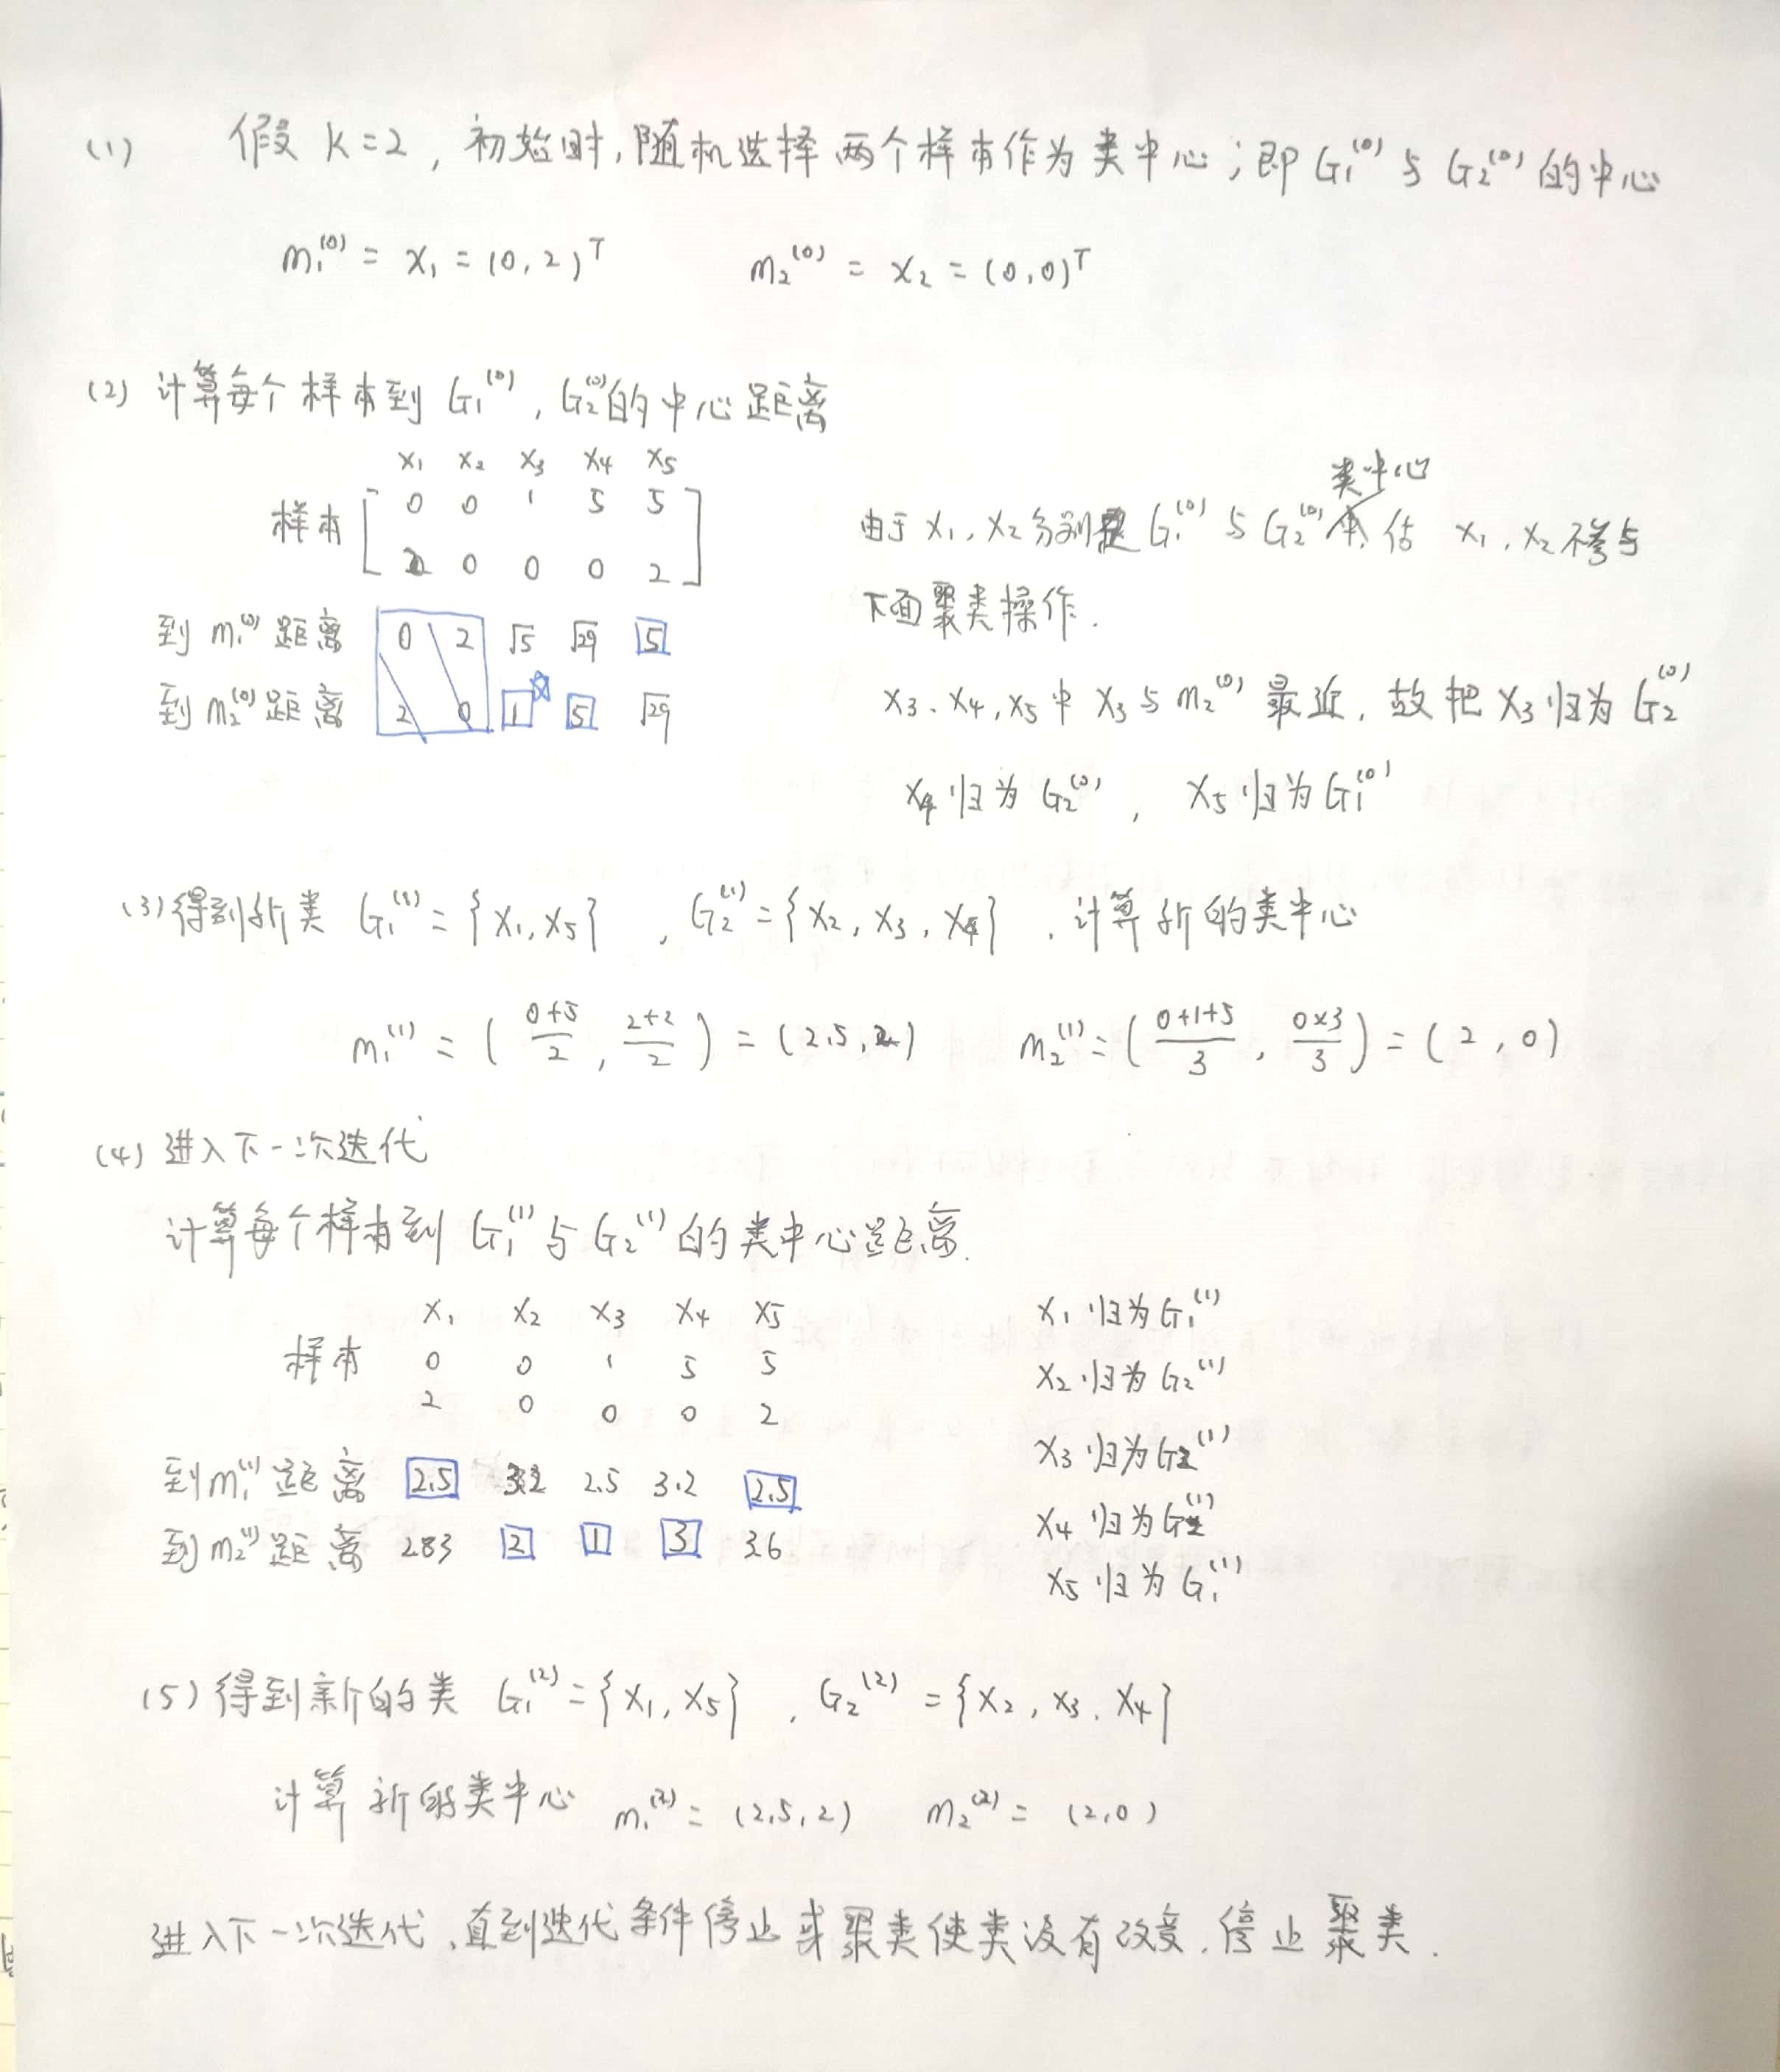 (1) 假设 K=2, 初始时, 随机选择两个样本作为类中心; 即 G₁⁽⁰⁾ 与 G₂⁽⁰⁾ 的中心
m₁⁽⁰⁾ = x₁ = (0, 2)ᵀ m₂⁽⁰⁾ = x₂ = (0, 0)ᵀ
(2) 计算每个样本到 G₁⁽⁰⁾, G₂⁽⁰⁾的中心距离
x₁ x₂ x₃ x₄ x₅
样本 [ 0 0 1 5 5 ]
2 0 0 0 2
到 m₁⁽⁰⁾ 距离 0 2 √5 √29 5
到 m₂⁽⁰⁾ 距离 2 0 1 5 √29
类中心
由于 x₁, x₂ 分别是 G₁⁽⁰⁾ 与 G₂⁽⁰⁾ x₁, x₂ 不参与
下面聚类操作.
x₃、x₄, x₅ 中 x₃ 与 m₂⁽⁰⁾ 最近, 故把 x₃ 归为 G₂⁽⁰⁾
x₄ 归为 G₂⁽⁰⁾, x₅ 归为 G₁⁽⁰⁾
(3) 得到新类 G₁⁽¹⁾ = {x₁, x₅}, G₂⁽¹⁾ = {x₂, x₃, x₄}, 计算新的类中心
m₁⁽¹⁾ = ( (0+5)/2, (2+2)/2 ) = (2.5, 2) m₂⁽¹⁾ = ( (0+1+5)/3, (0×3)/3 ) = (2, 0)
(4) 进入下一次迭代
计算每个样本到 G₁⁽¹⁾ 与 G₂⁽¹⁾ 的类中心距离.
x₁ x₂ x₃ x₄ x₅
样本 0 0 1 5 5
2 0 0 0 2
到 m₁⁽¹⁾ 距离 2.5 3.2 2.5 3.2 2.5
到 m₂⁽¹⁾ 距离 2.83 2 1 3 3.6
x₁ 归为 G₁⁽¹⁾
x₂ 归为 G₂⁽¹⁾
x₃ 归为 G₂⁽¹⁾
x₄ 归为 G₂⁽¹⁾
x₅ 归为 G₁⁽¹⁾
(5) 得到新的类 G₁⁽²⁾ = {x₁, x₅}, G₂⁽²⁾ = {x₂, x₃, x₄}
计算新的类中心 m₁⁽²⁾ = (2.5, 2) m₂⁽²⁾ = (2, 0)
进入下一次迭代, 直到迭代条件停止或聚类使类没有改变, 停止聚类.